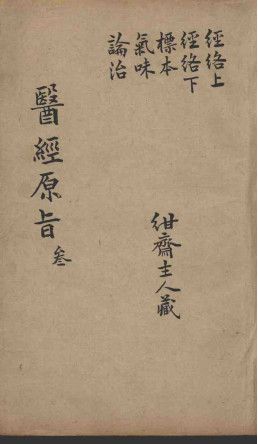 經絡上
經絡下
標本
氣味
論治
紺齋主人藏
醫經原旨 叁